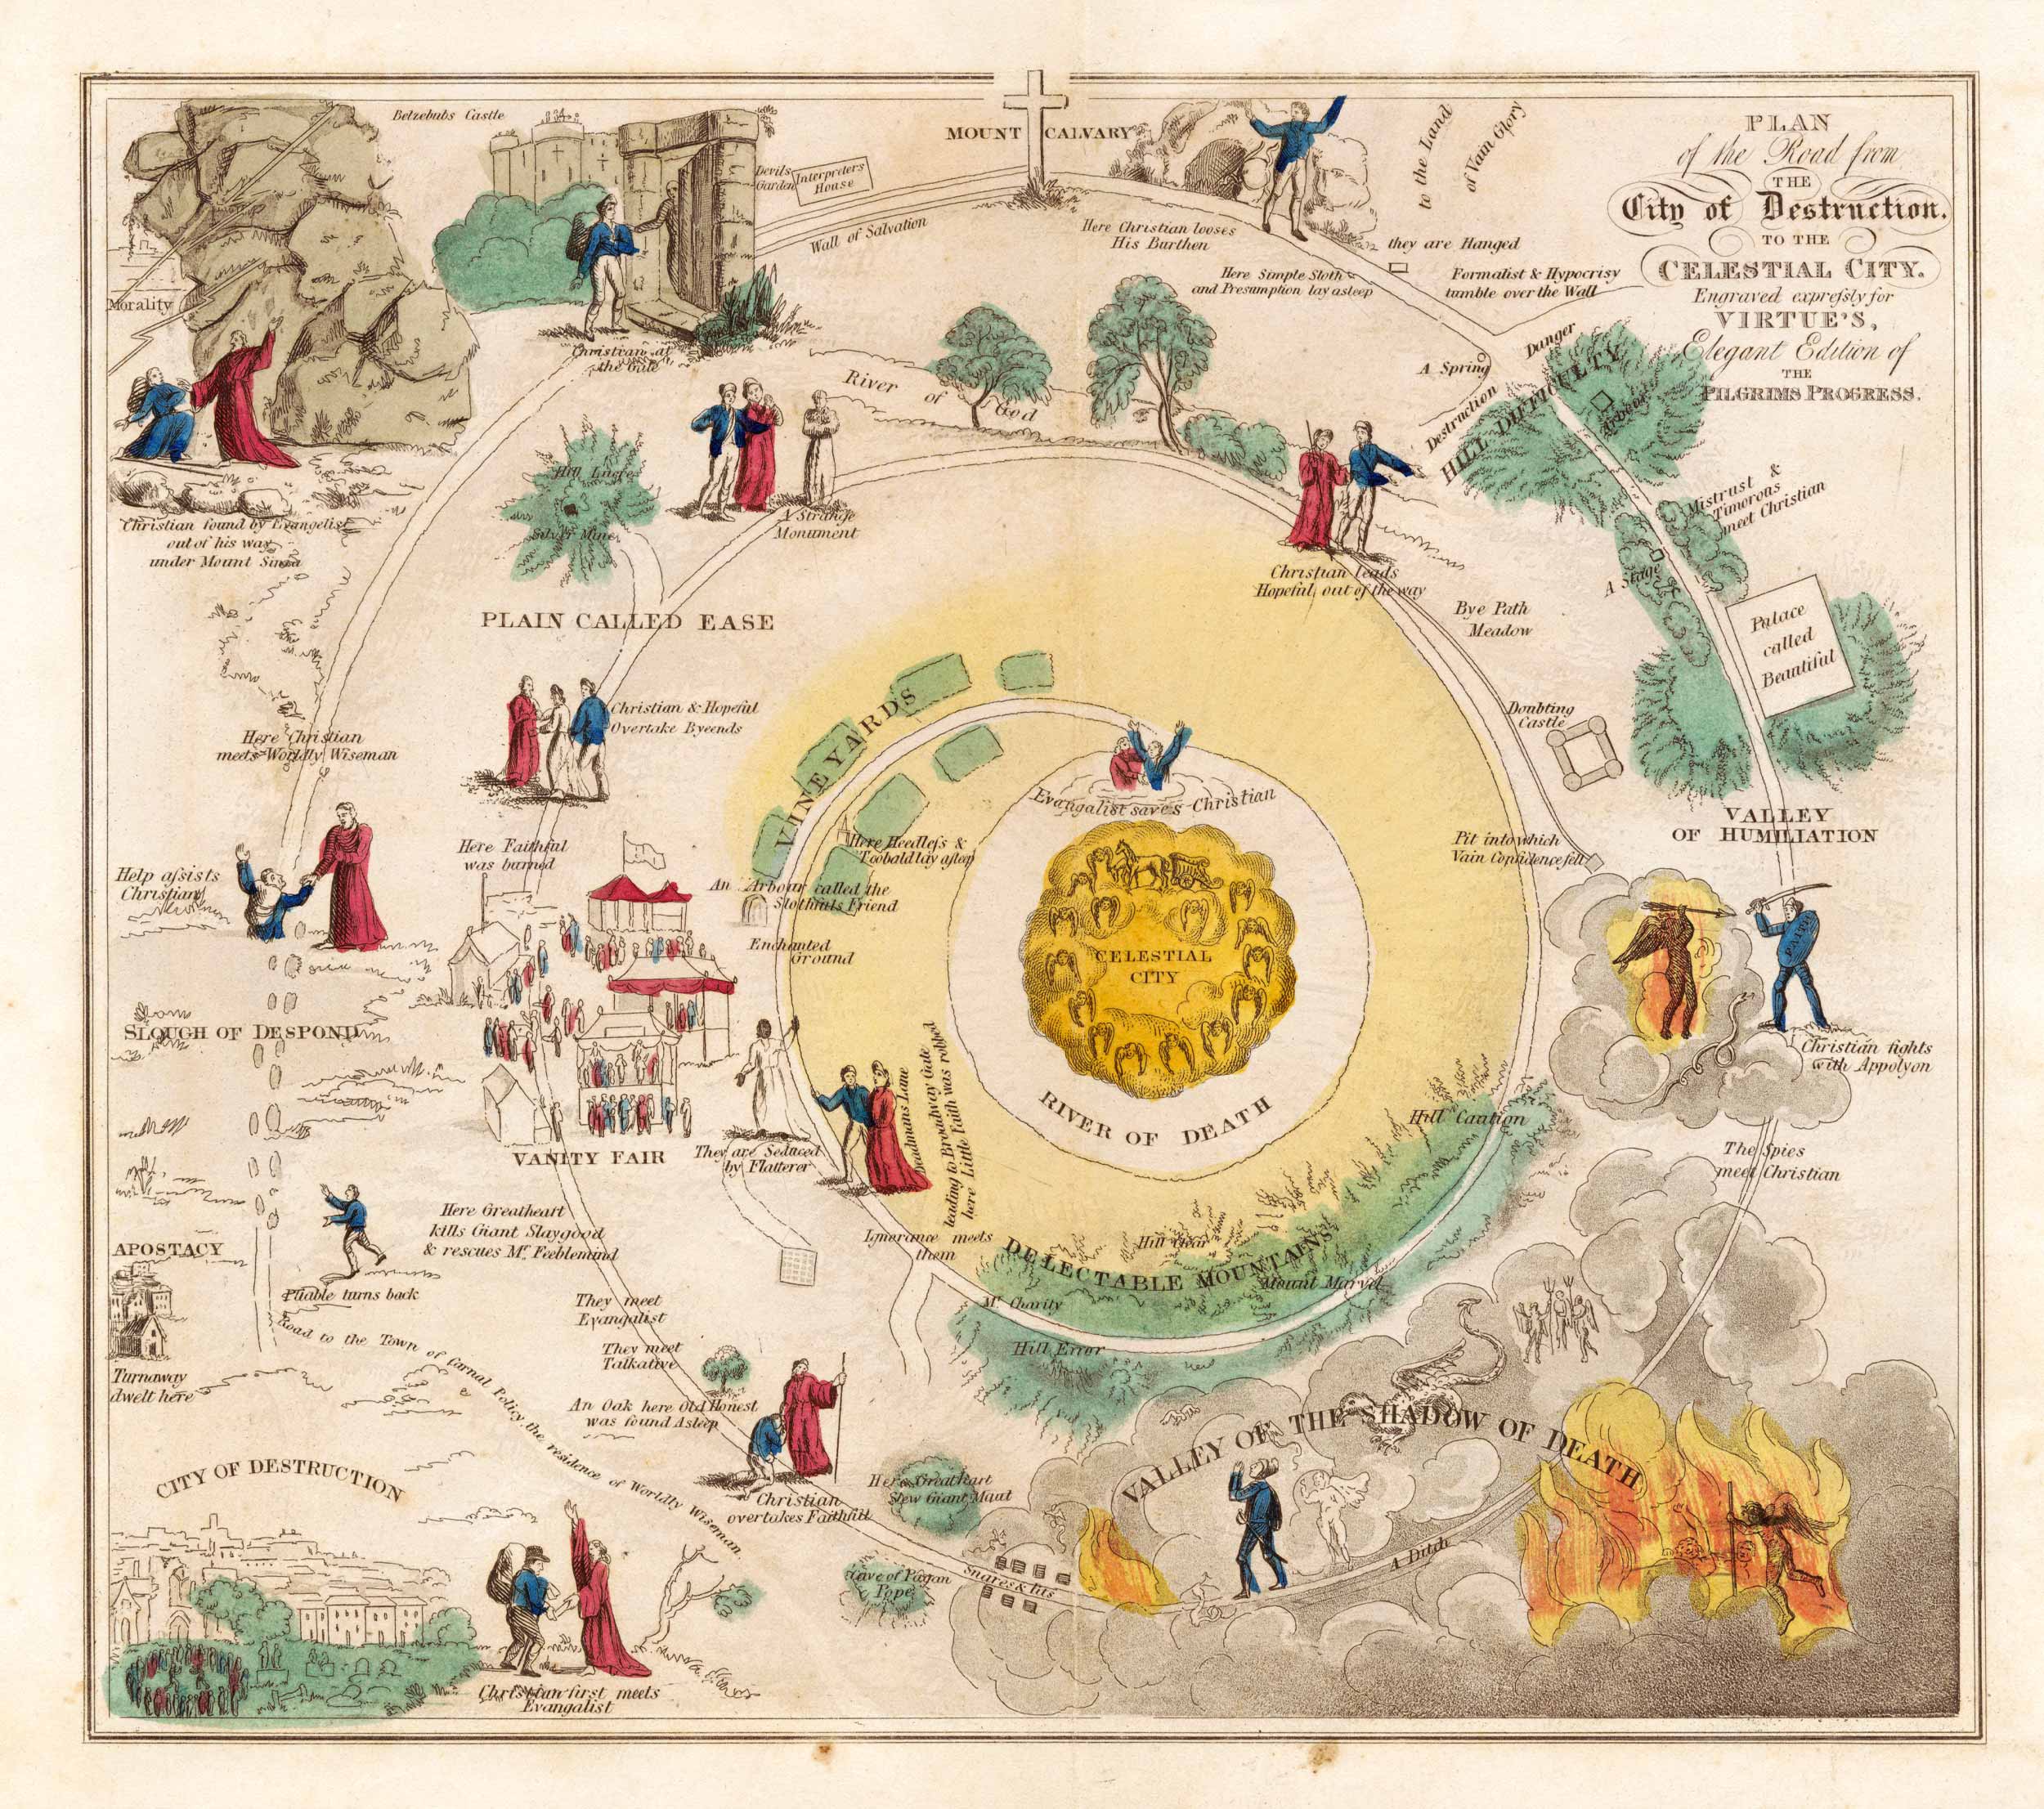 PLAN
of the Road from
THE
City of Destruction.
TO THE
CELESTIAL CITY.
Engraved expressly for
VIRTUE'S,
Elegant Edition of
THE
PILGRIMS PROGRESS.
Belzebubs Castle
Devils
Garden
Interpreters
House
Wall of Salvation
MOUNT CALVARY
Here Christian looses
His Burthen
to the Land
of Vain Glory
they are Hanged
Here Simple Sloth
and Presumption lay asleep
Formalist & Hypocrisy
tumble over the Wall
Morality
Christian at
the Gate
A Spring
Danger
Destruction
HILL DIFFICULTY
Arbour
River of God
Hill Lucre
Silver Mine
A Strange
Monument
Christian found by Evangelist
out of his way
under Mount Sinia
Mistrust &
Timorous
meet Christian
A Stage
Christian leads
Hopeful out of the way
Bye Path
Meadow
Palace
called
Beautiful
PLAIN CALLED EASE
Christian & Hopeful
Overtake Byeends
Here Christian
meets Worldly Wiseman
VINEYARDS
Doubting
Castle
VALLEY
OF HUMILIATION
Evangalist saves Christian
Here Faithful
was burned
Here Heedless &
Toobald lay asleep
Pit into which
Vain Confidence fell
Help assists
Christian
An Arbour called the
Slothfuls Friend
Enchanted
Ground
CELESTIAL
CITY
FAITH
SLOUGH OF DESPOND
Christian fights
with Appolyon
RIVER OF DEATH
Hill Caution
VANITY FAIR
They are Seduced
by Flatterer
Deadmans Lane
leading to Broadway Gate
here Little Faith was robbed
The Spies
meet Christian
Here Greatheart
kills Giant Slaygood
& rescues Mr. Feeblemind
Ignorance meets
them
DELECTABLE MOUNTAINS
Hill Clear
Mount Marvel
Mt. Charity
Hill Error
APOSTACY
Pliable turns back
Turnaway
dwelt here
Road to the Town of Carnal Policy, the residence of Worldly Wiseman.
They meet
Evangalist
They meet
Talkative
An Oak here Old Honest
was found Asleep
Christian
overtakes Faithfull
Here Greathart
Slew Giant Maul
VALLEY OF THE SHADOW OF DEATH
A Ditch
Snares & Pits
Cave of Pagan
Pope
CITY OF DESTRUCTION
Christian first meets
Evangalist